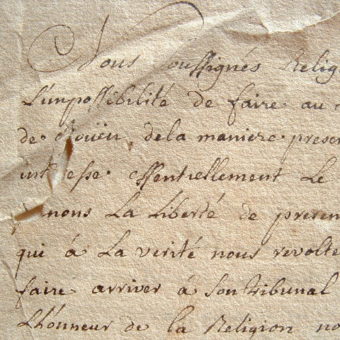 Nous soussignés Relig
L'impossibilité de faire au
de Roüen, de la maniere presen
interesse essentiellement Le
prenons La Liberté de presen
qui à La verité nous revolte
faire arriver à son tribunal
L'honneur de la Religion no